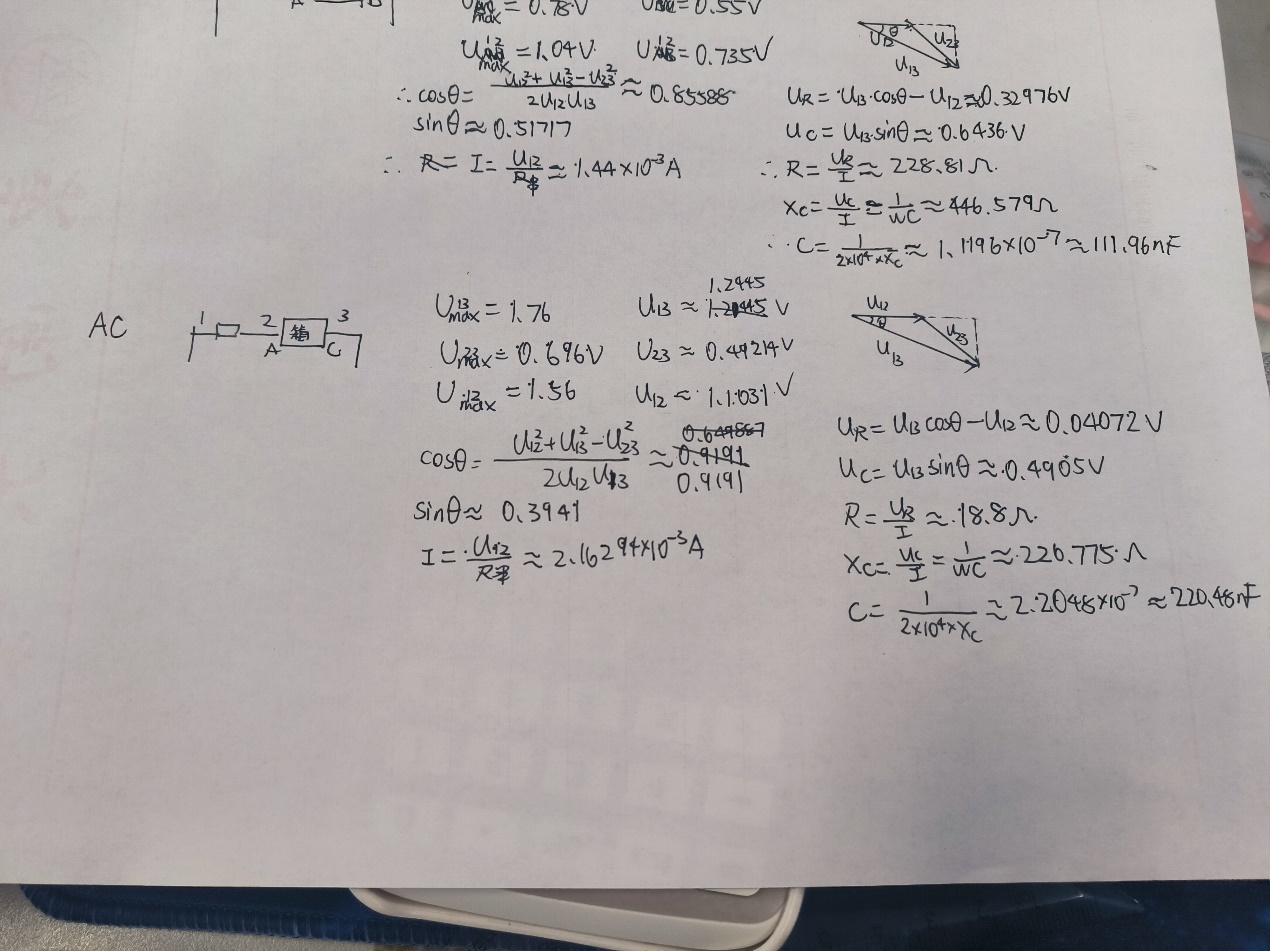 A B
Umax = 0.78V U = 0.55V
U12max = 1.04V U12 = 0.735V
∴ cosθ = (U12² + U13² − U23²) / (2U12U13) ≈ 0.85588
sinθ ≈ 0.51717
∴ R= I = U12/R串 ≈ 1.44×10⁻³A
U12 θ U23 U13
UR = U13·cosθ − U12 ≈ 0.32976V
UC = U13·sinθ ≈ 0.6436V
∴ R = UR/I ≈ 228.81Ω
XC = UC/I = 1/WC ≈ 446.579Ω
∴ C = 1/(2×10⁴×XC) ≈ 1.1196×10⁻⁷ ≈ 111.96nF
AC
1 2 箱 3
A C
U13max = 1.76 U13 ≈ 1.2445 V
U23max = 0.696V U23 ≈ 0.49214V
U12max = 1.56 U12 ≈ 1.1031V
cosθ = (U12² + U13² − U23²) / (2U12U13) ≈ 0.9191
sinθ ≈ 0.3941
I = U12/R串 ≈ 2.16294×10⁻³A
U12 θ U23 U13
UR = U13cosθ − U12 ≈ 0.04072V
UC = U13sinθ ≈ 0.4905V
R = UR/I ≈ 18.8Ω
XC = UC/I = 1/WC ≈ 226.775Ω
C = 1/(2×10⁴×XC) ≈ 2.2048×10⁻⁷ ≈ 220.48nF